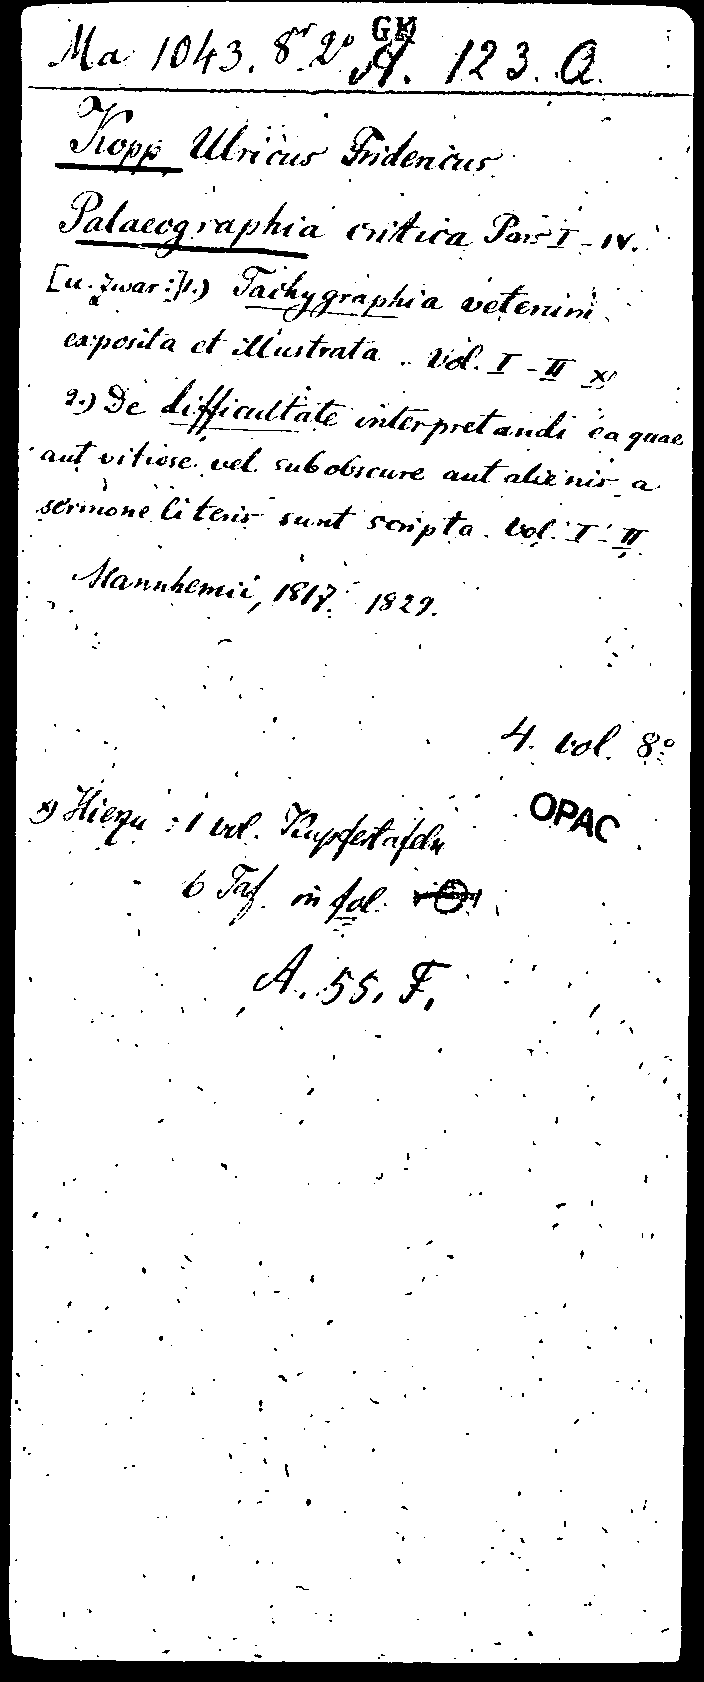 Ma 1043. 8° 2° A. 123. Q.
Kopp Ulricus Fridericus
Palaeographia critica Pars I - IV.
[u. zwar:] 1.) Tachygraphia veterum
exposita et illustrata. Vol. I - II x)
2.) De difficultate interpretandi ea quae
aut vitiose vel subobscure aut alienis a
sermone literis sunt scripta. Vol. I - II
Mannhemii, 1817. 1829.
4. vol. 8°
x) Hiezu: 1 vol. Kupfertafeln
OPAC
6 Taf. in fol.
A. 55. F.